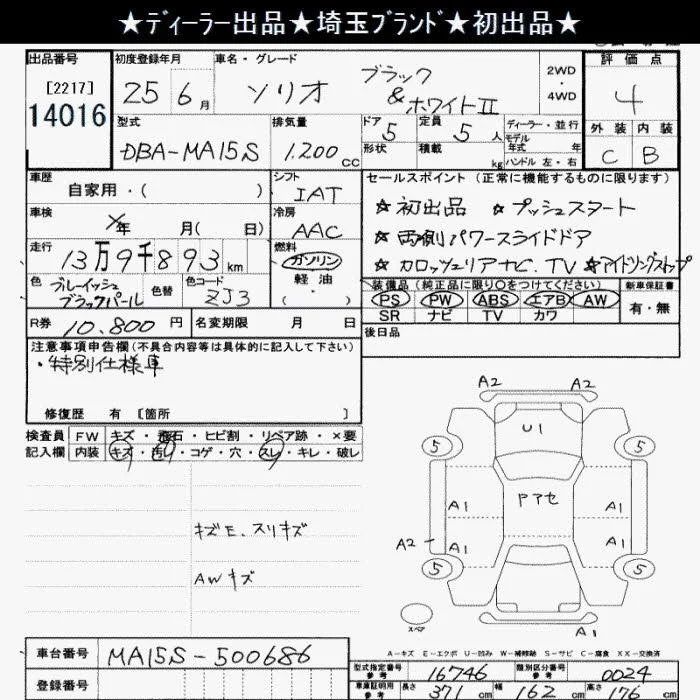 ★ディーラー出品★埼玉ブランド★初出品★
出品番号
[2217]
14016
初度登録年月
25 6月
車名・グレード
ソリオ ブラック
& ホワイトⅡ
2WD
・
4WD
評価点
4
外装 内装
C B
型式
DBA-MA15S
排気量
1,200cc
ドア
5
形状
定員
5人
積載
kg
ディーラー・並行
モデル
年式 年
ハンドル 左・右
車歴
自家用・( )
シフト
IAT
車検
年 月( 日)
冷房
AAC
走行
13万9千893km
燃料
ガソリン
軽油
( )
色
ブルーイッシュ
ブラックパール
色替
色コード
ZJ3
R券 10,800円
名変期限 月 日
セールスポイント(正常に機能するものに限ります)
★初出品 ★プッシュスタート
★両側パワースライドドア
★カロッツェリアナビ.TV ★アイドリングストップ
装備品(純正品に限り○をつけてください)
PS PW ABS エアB AW
SR ナビ TV カワ
新車保証書
有・無
後日品
注意事項申告欄(不具合内容等は具体的に記入して下さい)
・特別仕様車
修復歴 有 〔箇所 〕
検査員
記入欄
FW キズ・飛石・ヒビ割・リペア跡・×要
内装 キズ・汚レ・コゲ・穴・スレ・キレ・破レ
キズE.スリキズ
AWキズ
A2 A2
U1
5 5
ドアセ
A1 A1
A1
A2 A1 A1
5 5
スペア
A1
A-キズ E-エクボ U-凹み W-補修跡 S-サビ C-腐食 XX-交換済
車台番号
MA15S-500686
登録番号
型式指定番号
参考
16746
類別区分番号
参考
0024
車庫証明用
参考
長さ 371cm 幅 162cm 高さ 176cm